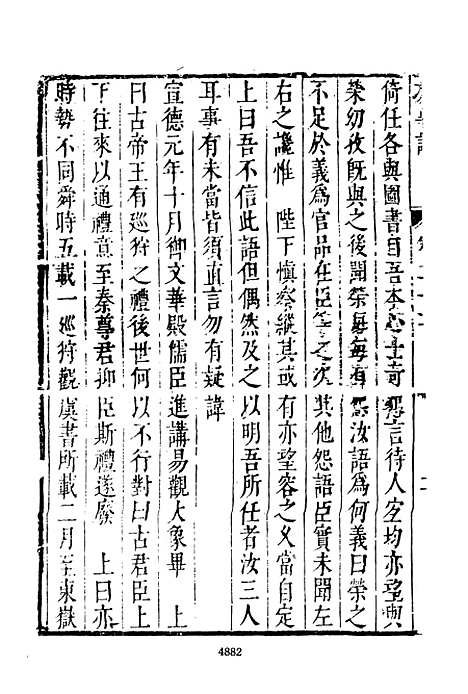 倚任各與圖書曰吾本心士奇怨言待人宜均亦望與
榮幼孜既與之後聞榮每有怨汝語爲何義曰榮之
不足於義爲官品在臣等之次其他怨語臣實未聞左
右之讒惟 陛下慎察縱其或有亦望容之久當自定
上曰吾不信此語但偶然及之以明吾所任者汝三人
耳事有未當皆須直言勿有疑諱
宣德元年十月御文華殿儒臣進講易觀大象畢 上
曰古帝王有巡狩之禮後世何以不行對曰古君臣上
下往來以通禮意至秦尊君抑臣斯禮遂廢 上曰亦
時勢不同舜時五載一巡狩觀虞書所載二月至東嶽
二
4882